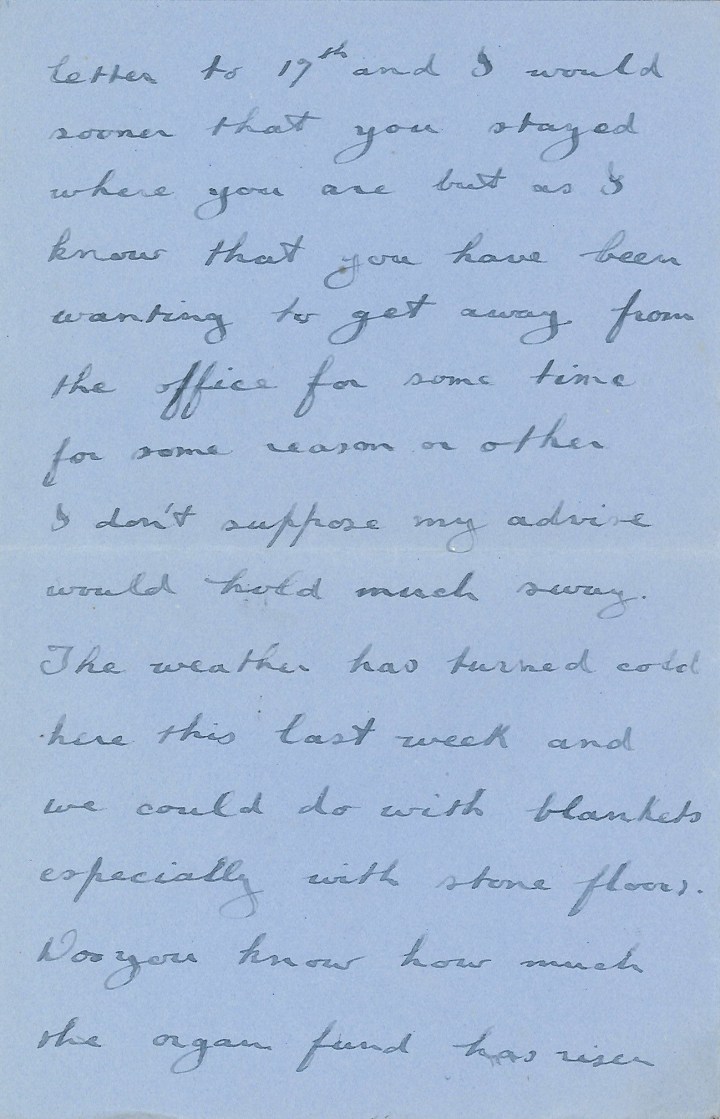 letter to 19th and I would
sooner that you stayed
where you are but as I
know that you have been
wanting to get away from
the office for some time
for some reason or other
I don't suppose my advise
would hold much sway.
The weather has turned cold
here this last week and
we could do with blankets
especially with stone floors.
Do you know how much
the organ fund has risen